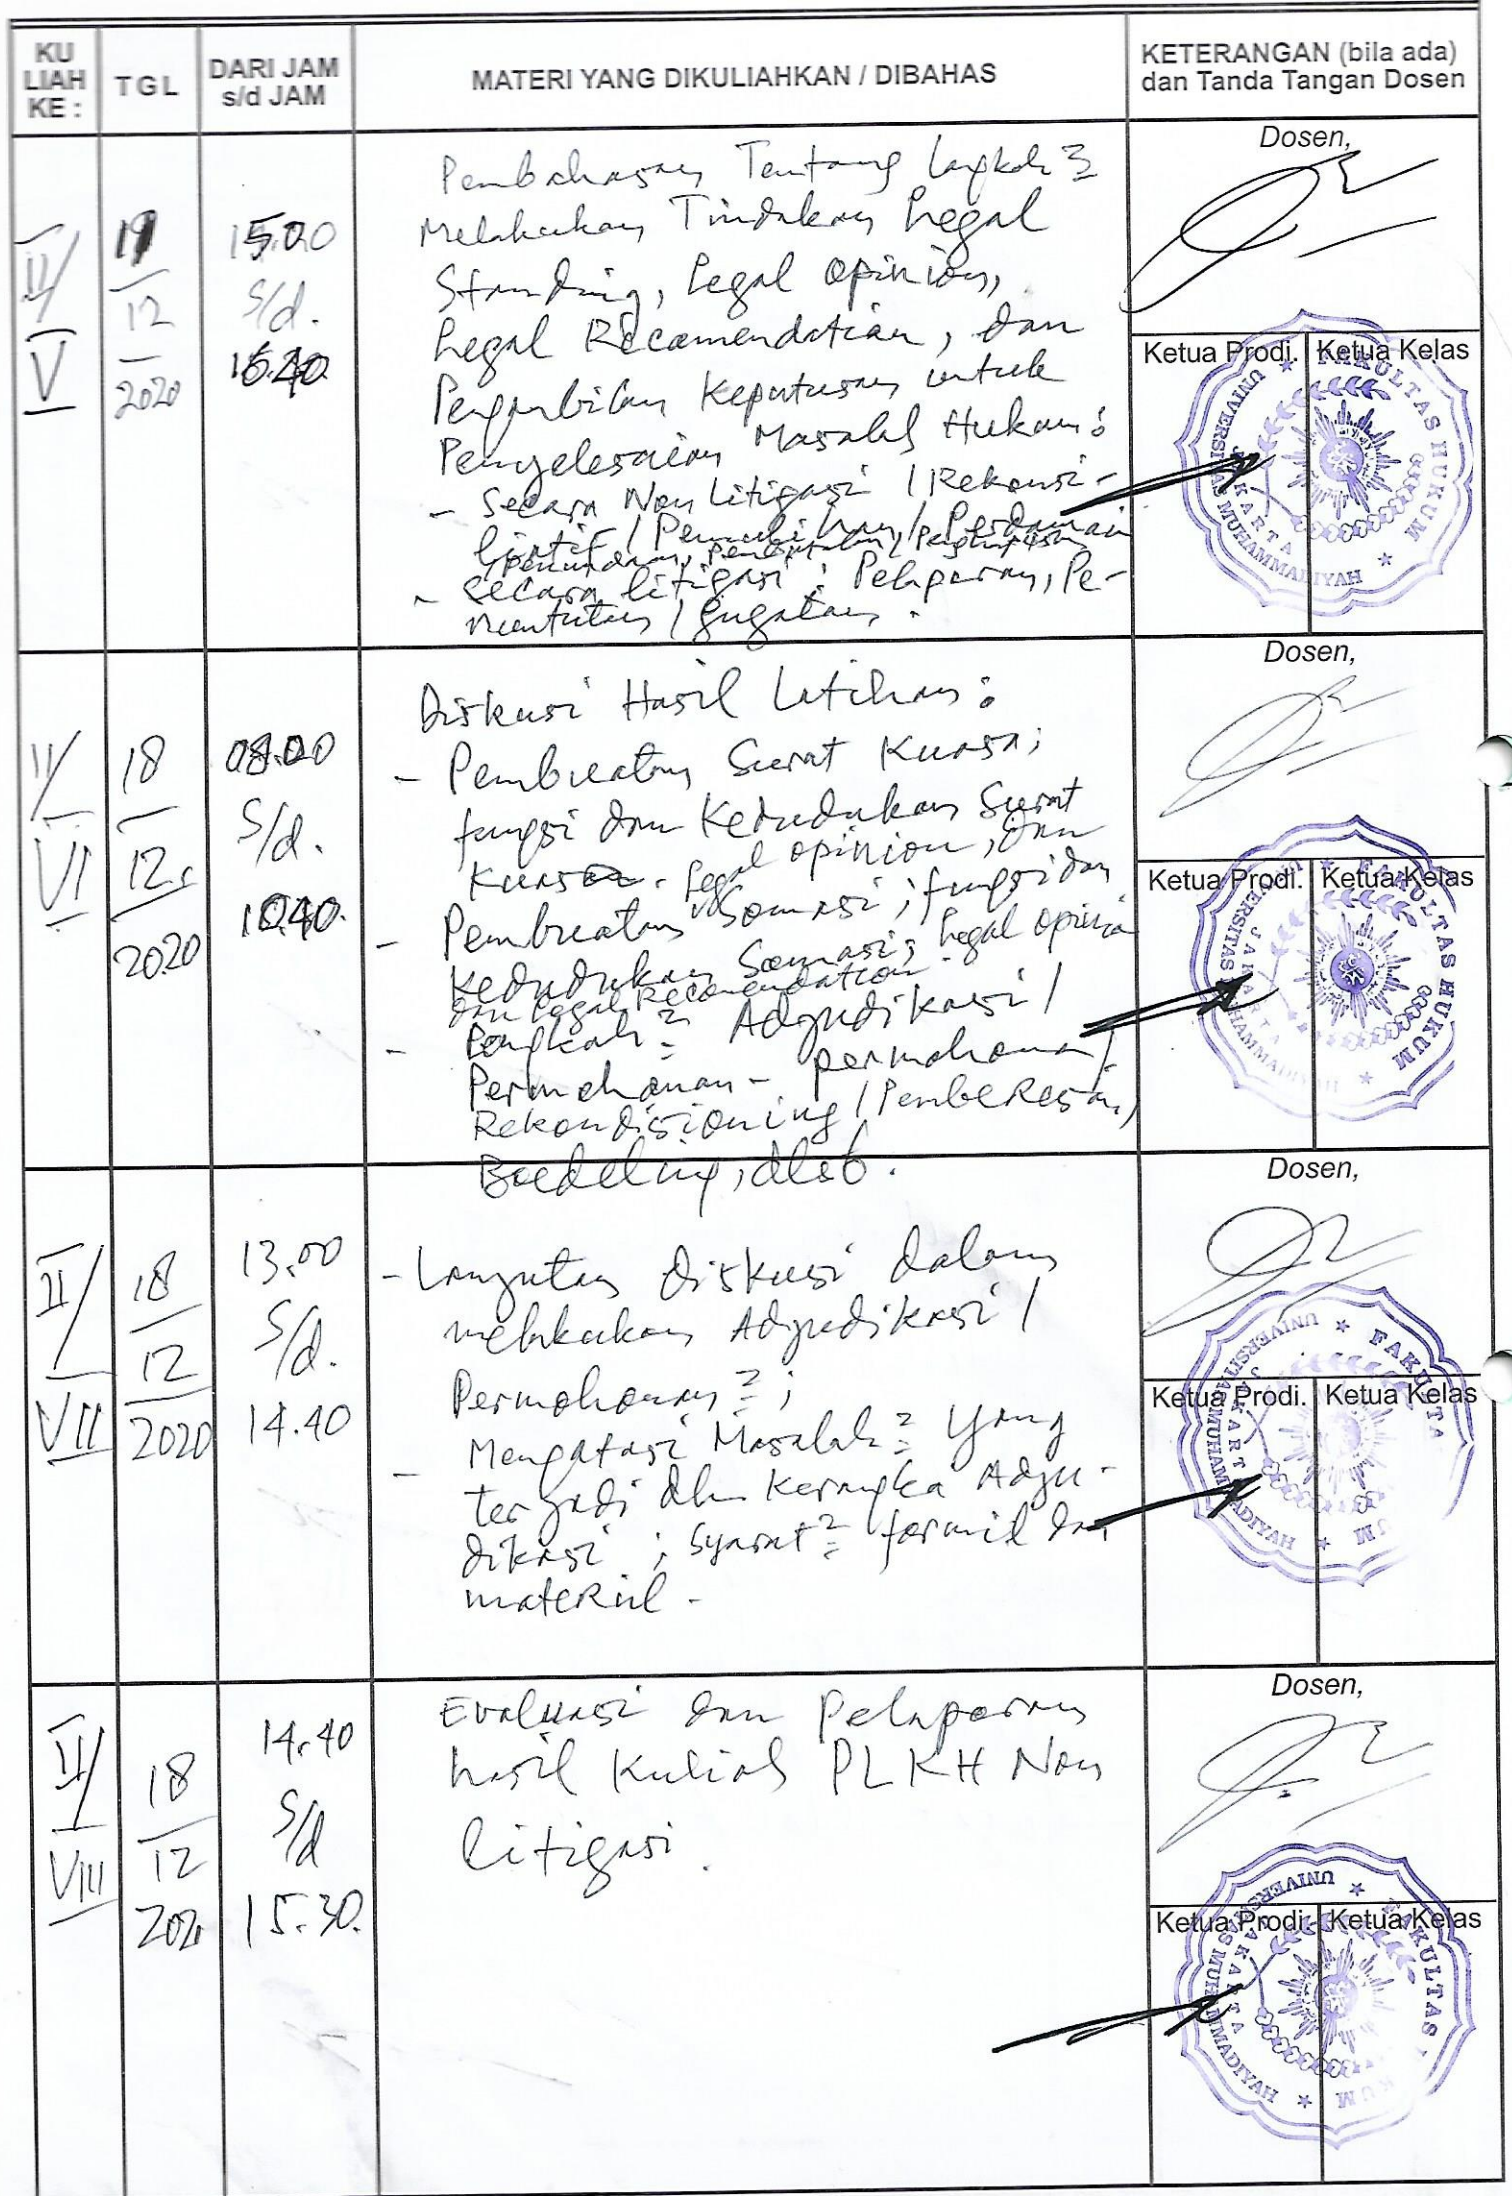 KU LIAH KE :
TGL
DARI JAM s/d JAM
MATERI YANG DIKULIAHKAN / DIBAHAS
KETERANGAN (bila ada)
dan Tanda Tangan Dosen
II/
V
12
2020
15.00
s/d.
Pembahasan Tentang langkah2
Melakukan Tindakan Legal
Standing, Legal Opinion,
Legal Recomendation, dan
Pengambilan Keputusan untuk
Penyelesaian Masalah Hukum:
- Secara Non Litigasi / Rekonsi-
/ Pemulihan / Perdamaian
- Secara litigasi : Pelaporan, Pe-
nuntutan / gugatan.
Dosen,
Ketua Prodi.
Ketua Kelas
FAKULTAS HUKUM
UNIVERSITAS MUHAMMADIYAH
JAKARTA
II/
VI
18
12
2020
08.00
s/d.
10.40.
Diskusi Hasil Latihan:
- Pembuatan Surat Kuasa;
fungsi dan Kedudukan Surat
Kuasa. Legal opinion, dan
- Pembuatan Somasi; fungsi dan
Kedudukan Somasi, Legal opinion
dan Legal Recomendation
- Langkah2 Adjudikasi /
Permohonan - permohonan /
Rekondisioning / Pemberesan,
Boedeling, dlsb.
Dosen,
Ketua Prodi.
Ketua Kelas
FAKULTAS HUKUM
UNIVERSITAS MUHAMMADIYAH
JAKARTA
II/
VII
18
12
2020
13.00
s/d.
14.40
- Lanjutan diskusi dalam
melakukan Adjudikasi /
Permohonan2;
- Mengatasi Masalah2 yang
terjadi dlm Kerangka Adju-
dikasi ; Syarat2 formil dan
materiil -
Dosen,
Ketua Prodi.
Ketua Kelas
FAKULTA UM
UNIVERSITAS MUHAMMADIYAH
JAKART
II/
VIII
18
12
202
14.40
s/d
15.30.
Evaluasi dan Pelaporan
hasil Kuliah PLKH Non
litigasi.
Dosen,
Ketua Prodi.
Ketua Kelas
FAKULTAS UM
UNIVERSITAS MUHAMMADIYAH
JAKARTA